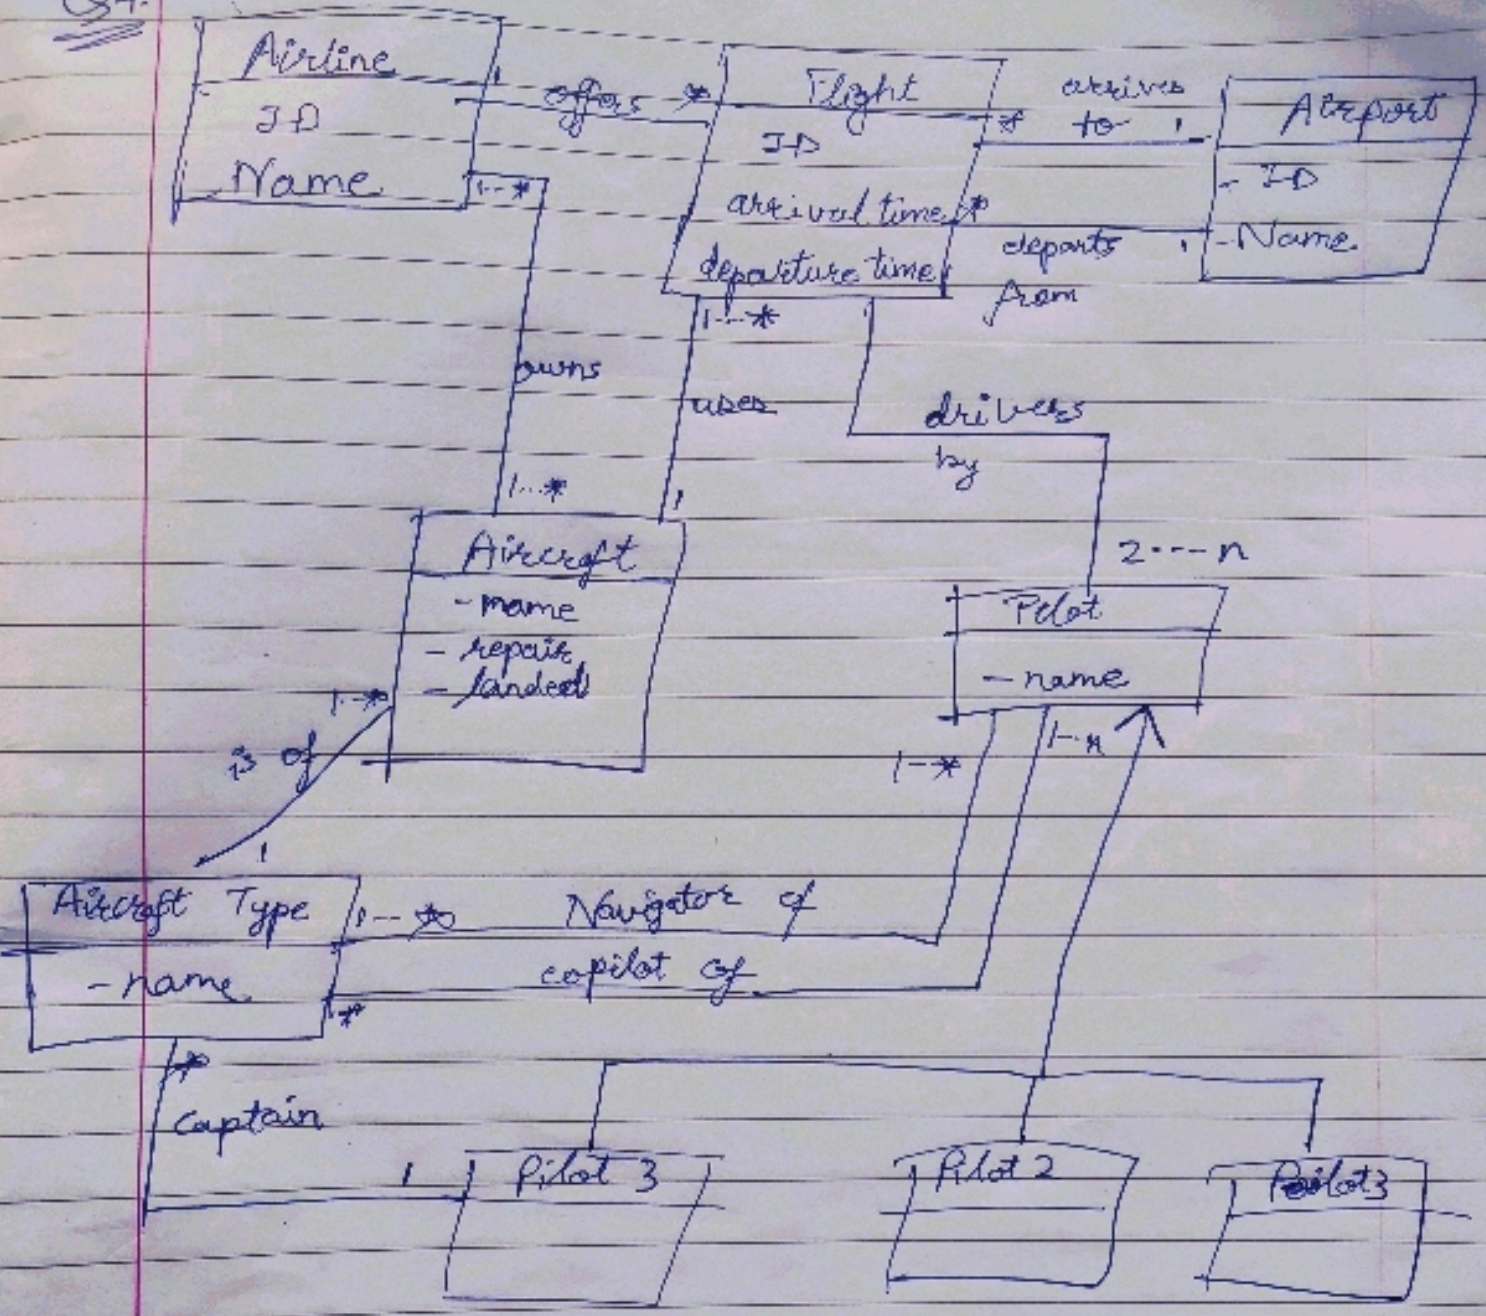 Q4.
Airline
ID
Name
1
offers
*
Flight
ID
arrival time
departure time
*
arrives
to
1
*
departs
from
1
Airport
- ID
- Name
1--*
owns
1...*
1--*
uses
1
drivers
by
2----n
Aircraft
- name
- repair
- landed
Pilot
- name
1--*
is of
1
1--*
1--*
Aircraft Type
- name
1--*
Navigator of
copilot of
*
*
Captain
1
Pilot 3
Pilot 2
Pilot3